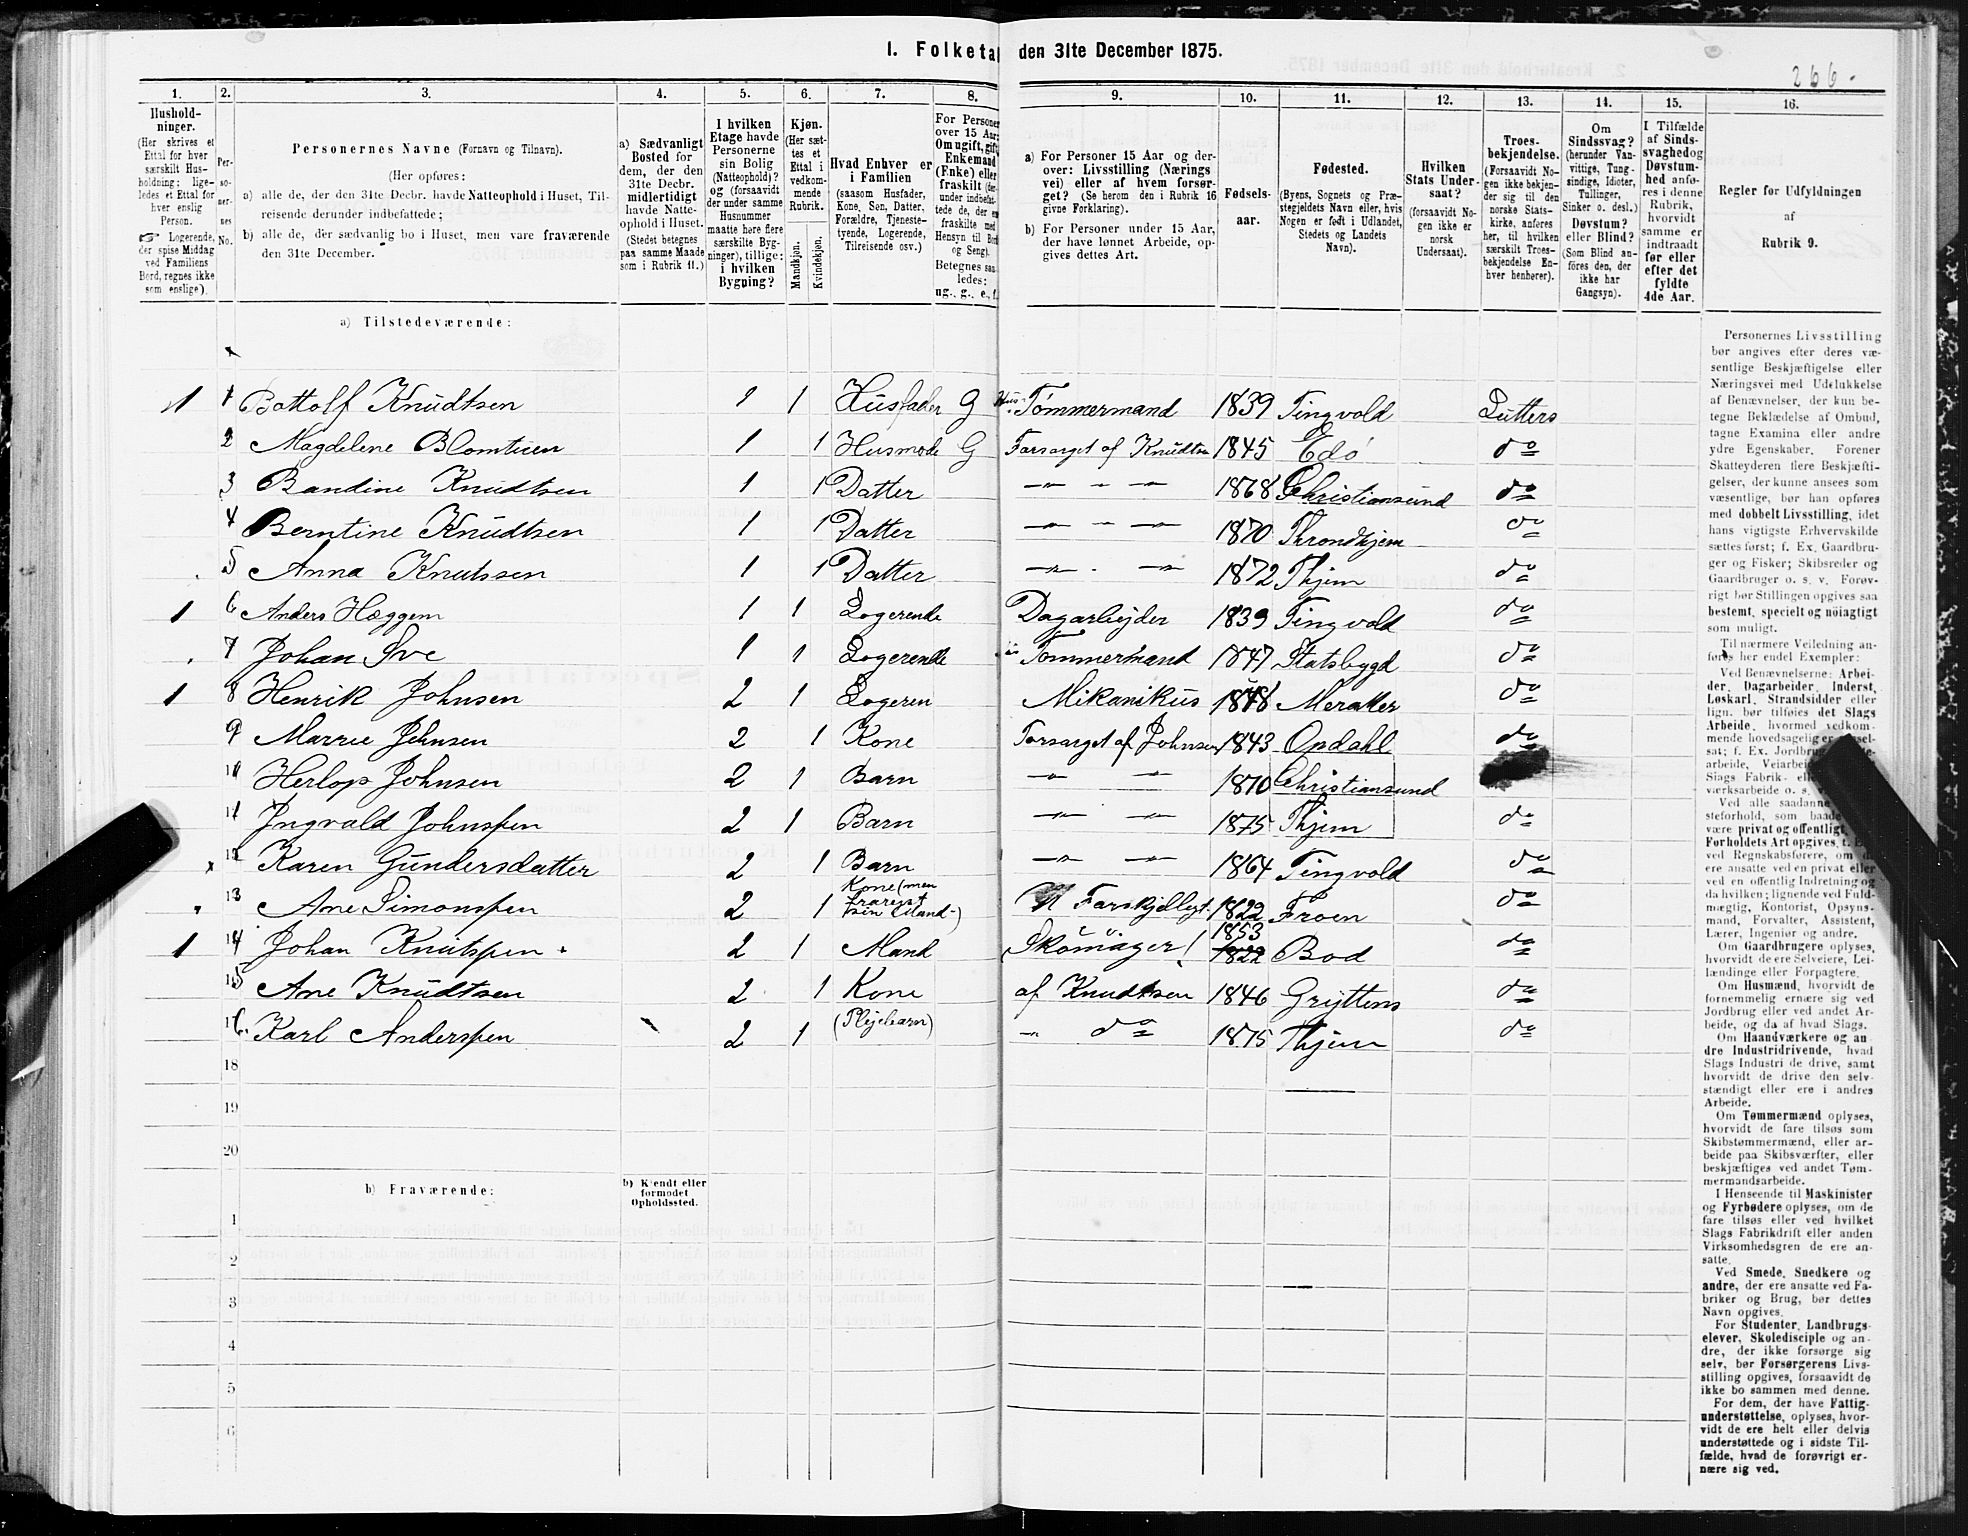 I. Folketa den 31te December 1875.
266.
1. 2. 3. 4. 5. 6. 7. 8. 9. 10. 11. 12. 13. 14. 15. 16.
Hushold-
ninger.
(Her skrives et
Ettal for hver
særskilt Hus-
holdning; lige-
ledes et Ettal for
hver enslig
Person.
☞ Logerende,
der spise Middag
ved Familiens
Bord, regnes ikke
som enslige).
Per-
so-
ner-
nes
No.
Personernes Navne (Fornavn og Tilnavn).
(Her opføres:
a) alle de, der den 31te Decbr. havde Natteophold i Huset, Til-
reisende derunder indbefattede;
b) alle de, der sædvanlig bo i Huset, men vare fraværende
den 31te December.
a) Sædvanligt
Bosted for
dem, der den
31te Decbr.
midlertidigt
havde Natte-
ophold i Huset.
(Stedet betegnes
paa samme Maade
som i Rubrik 11.)
I hvilken
Etage havde
Personerne
sin Bolig
(Natteophold)?
og (forsaavidt
der under samme
Husnummer
maatte høre flere
særskilte Byg-
ninger), tillige:
i hvilken
Bygning?
Kjøn.
(Her sæt-
tes et
Ettal i
vedkom-
mende
Rubrik.
Mandkjøn.
Kvindekjøn.
Hvad Enhver er
i Familien
(saasom Husfader,
Kone, Søn, Datter,
Forældre, Tjeneste-
tyende, Logerende,
Tilreisende osv.)
For Persone
over 15 Aar:
Om ugift, gift
Enkemand
(Enke) eller
fraskilt (der-
under indbefat-
tede de, der er
fraskilte med
Hensyn til Bord
og Seng).
Betegnes saa-
ledes:
ug., g., e., f.
a) For Personer 15 Aar og der-
over: Livsstilling (Nærings
vei) eller af hvem forsør-
get? (Se herom den i Rubrik 16
givne Forklaring).
b) For Personer under 15 Aar,
der have lønnet Arbeide, op-
gives dettes Art.
Fødsels-
aar.
Fødested.
(Byens, Sognets og Præ-
stegjeldets Navn eller, hvis
Nogen er født i Udlandet,
Stedets og Landets
Navn).
Hvilken
Stats Under-
saat?
(forsaavidt No-
gen ikke er
norsk
Undersaat).
Troes-
bekjendelse.
(Forsaavidt No-
gen ikke bekjen-
der sig til den
norske Stats-
kirke, anføres
her, til hvilken
særskilt Troes-
bekjendelse En-
hver henhører).
Om
Sindssvag?
(herunder Van-
vittige, Tung-
sindige, Idioter,
Tullinger,
Sinker o. desl.)
Døvstum?
eller Blind?
(Som Blind an-
føres den, der
ikke har
Gangsyn).
I Tilfælde
af Sinds-
svaghed og
Døvstum-
hed anfø-
res i denne
Rubrik,
hvorvidt
samme er
indtraadt
før eller
efter det
fyldte
4de Aar.
Regler for Udfyldningen
af
Rubrik 9.
a) Tilstedeværende:
1 1 Bottolf Knudtsen 1 1 Husfader G Hus Tømmermand 1839 Tingvold Lutters
2 Magdelene Blomtuen 1 1 Husmode G Forsørget af Knudtsen 1845 Edø do
3 Bandine Knudtsen 1 1 Datter — " — 1868 Christiansund do
4 Berntine Knudtsen 1 1 Datter — " — 1870 Throndhjem do
5 Anna Knutssen 1 1 Datter — " — 1872 Thjem do
1 6 Anders Hæggem 1 1 Logerende Dagarbejder 1839 Tingvold do
7 Johan Sve 1 1 Logerende Tømmermand 1847 Statsbygd do
1 8 Henrik Johnsen 2 1 Logeren Mikanikus 1848 Meraker do
9 Marrie Johnsen 2 1 Kone Forsørget af Johnsen 1843 Opdahl do
10 Herlop Johnsen 2 1 Barn — " — 1870 Christiansund
11 Ingvald Johnssen 2 1 Barn — " — 1875 Thjem do
x 12 Karen Gundersdatter 2 1 Barn — " — 1864 Tingvold do
13 Ane Simonssen 2 1 Kone (men frarejst sin Mand-) Forskjelligt. 1822 Froen do
1 14 Johan Knutssen 2 1 Mand Skomager! 1822 1853 Bod do
15 Ane Knudtsen 2 1 Kone af Knudtsen 1846 Gryttens do
16. Karl Anderssen 2 1 (Plejebarn) — do 1875 Thjem do
18
19
20
b) Fraværende:
b) Kjendt eller
formodet
Opholdssted.
1
2
3
4
5
6
Personernes Livsstilling
bør angives efter deres væ-
sentlige Beskjæftigelse eller
Næringsvei med Udelukkelse
af Benævnelser, der kun be-
tegne Beklædelse af Ombud,
tagne Examina eller andre
ydre Egenskaber. Forener
Skatteyderen flere Beskjæfti-
gelser, der kunne ansees som
væsentlige, bør han opføres
med dobbelt Livsstilling, idet
hans vigtigste Erhvervskilde
sættes først; f. Ex. Gaardbru-
ger og Fisker; Skibsreder og
Gaardbruger o. s. v. Forøv-
rigt bør Stillingen opgives saa
bestemt, specielt og nøiagtigt
som muligt.
Til nærmere Veiledning an-
føres her endel Exempler:
Ved Benævnelserne: Arbei-
der, Dagarbeider, Inderst,
Løskarl, Strandsidder eller
lign. bør tilføies det Slags
Arbeide, hvormed vedkom-
mende hovedsagelig er
sat; f. Ex. Jordbru
arbeide, Veiarbei
Slags Fabrik- ell
værksarbeide o. s. v.
Ved alle saadanne
steforhold, som baade
være privat og offentligt,
Forholdets Art opgives, f. E
ved Regnskabsførere, om d
ere ansatte ved en privat eller
ved en offentlig Indretning og
da hvilken; lignende ved Fuld-
mægtig, Kontorist, Opsyns-
mand, Forvalter, Assistent,
Lærer, Ingeniør og andre.
Om Gaardbrugere oplyses,
hvorvidt de ere Selveiere, Lei-
lændinge eller Forpagtere.
Om Husmænd, hvorvidt de
fornemmelig ernære sig ved
Jordbrug eller ved andet Ar-
beide, og da af hvad Slags.
Om Haandværkere og an-
dre Industridrivende, hvad
Slags Industri de drive, samt
hvorvidt de drive den selv-
stændigt eller ere i andres
Arbeide.
Om Tømmermænd oplyses,
hvorvidt de fare tilsøs som
Skibstømmermænd, eller ar-
beide paa Skibsværfter, eller
beskjæftiges ved andet Tøm-
mermandsarbeide.
I Henseende til Maskinister
og Fyrbødere oplyses, om de
fare tilsøs eller ved hvilket
Slags Fabrikdrift eller anden
Virksomhedsgren de ere an-
satte.
Ved Smede, Snedkere og
andre, der ere ansatte ved Fa-
briker og Brug, bør dettes
Navn opgives.
For Studenter, Landbrugs-
elever, Skoledisciple og an-
dre, der ikke forsørge sig
selv, bør Forsørgerens Livs-
stilling opgives, forsaavidt de
ikke bo sammen med denne.
For dem, der have Fattig-
understøttelse, oplyses, hvor-
vidt de ere helt eller delvis
understøttede og i sidste Til-
fælde, hvad de forøvrigt er-
nære sig ved.